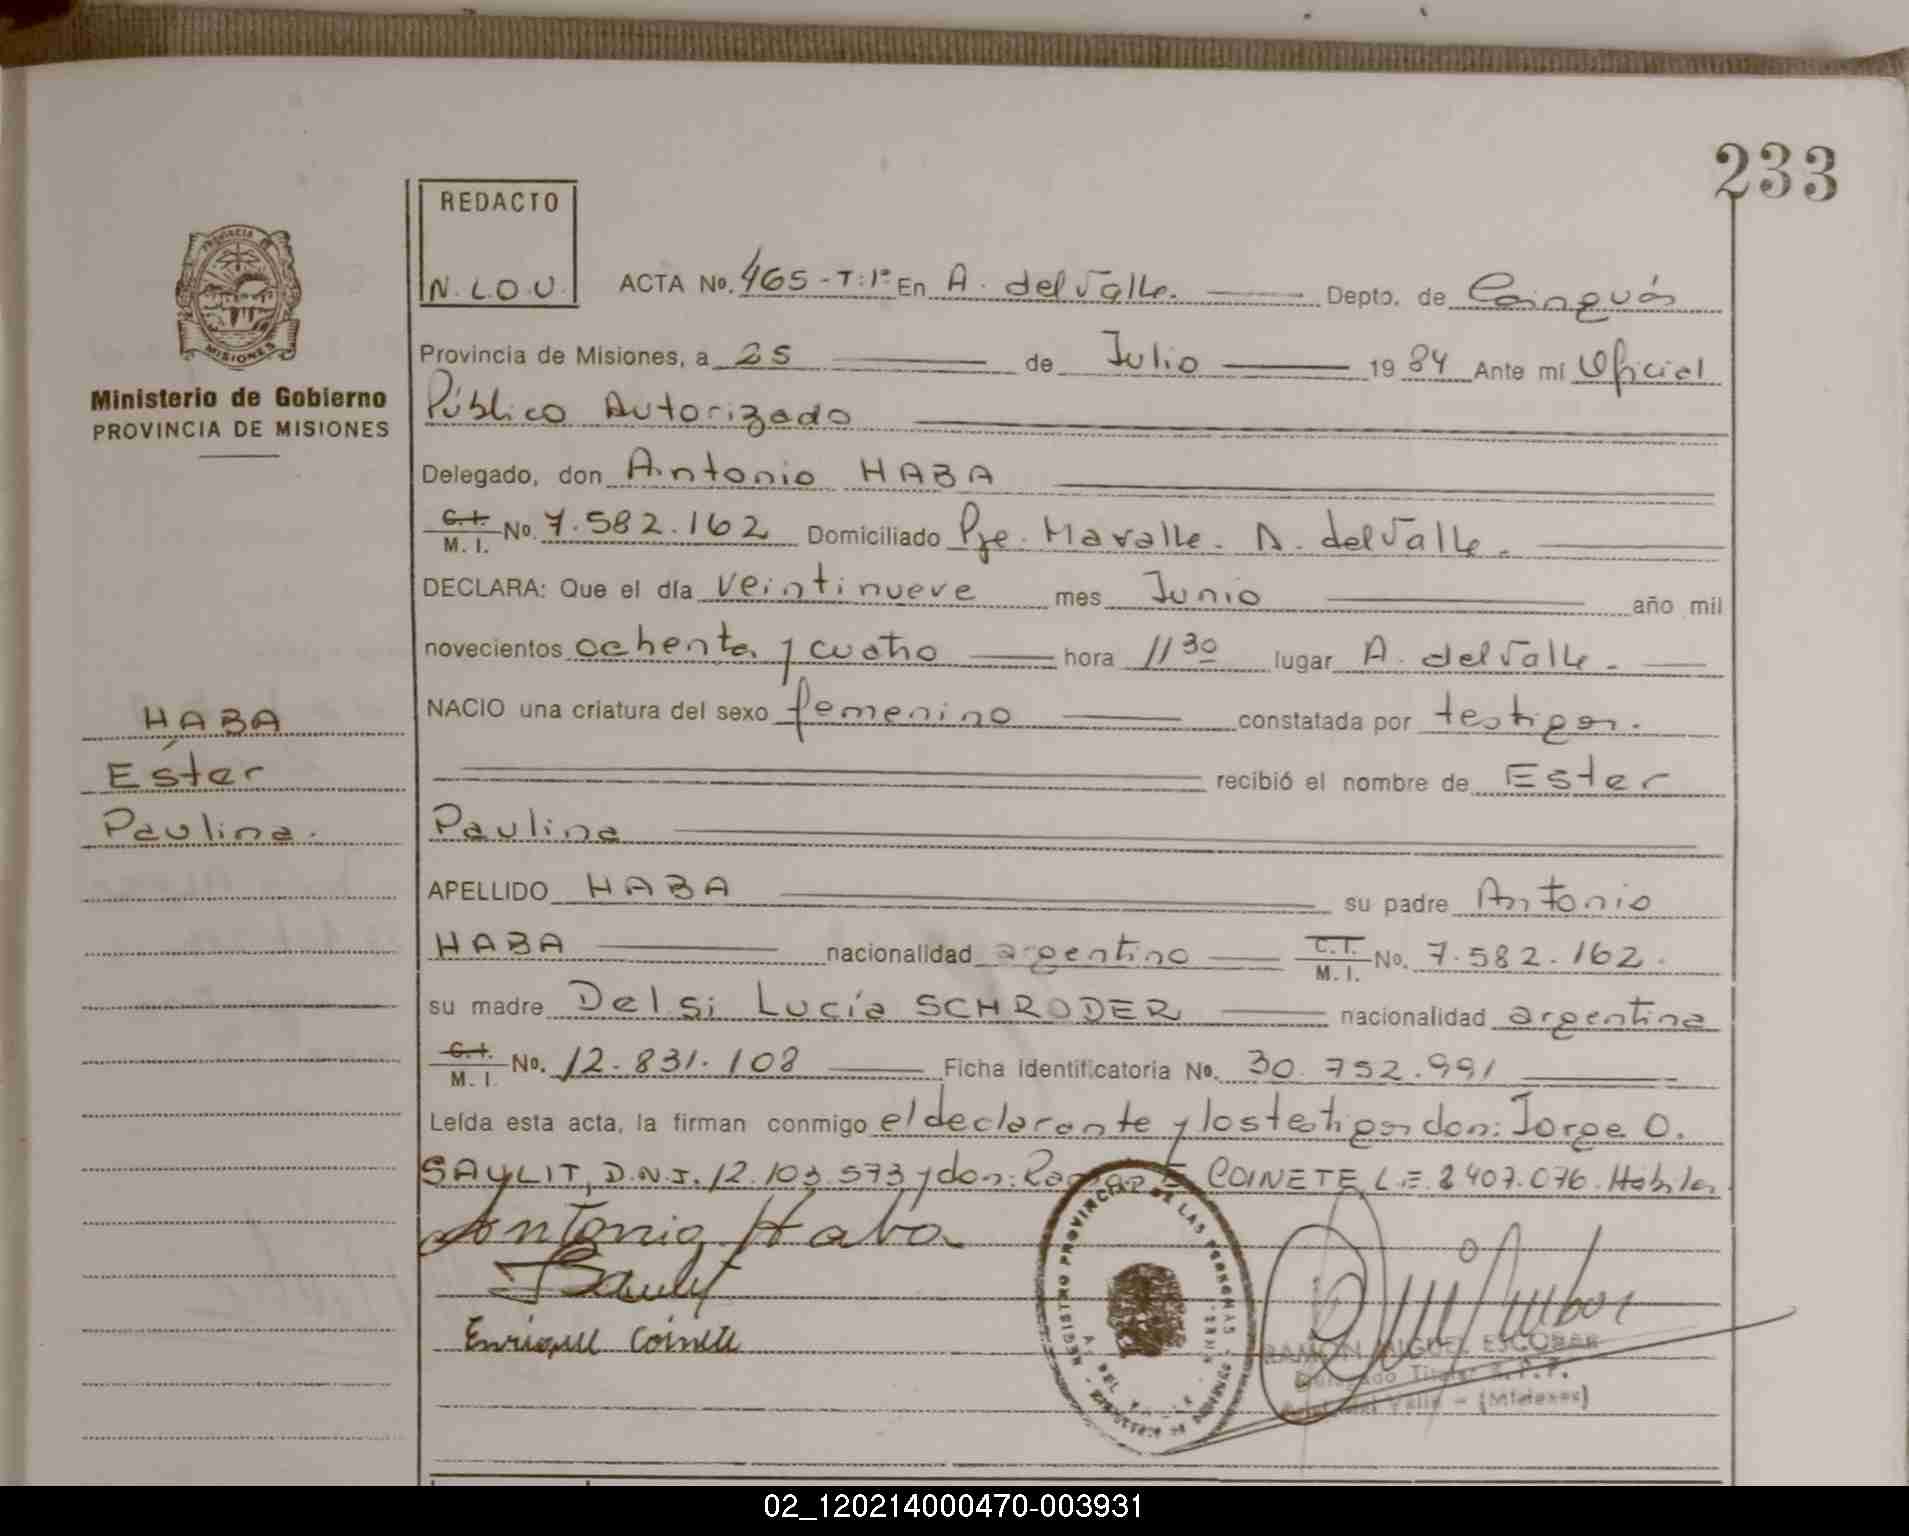 233
REDACTO
N.L.O.U.
ACTA No. 465-T:1º En A. del Valle. Depto. de Cainguás
Provincia de Misiones, a 25 de Julio 1984 Ante mí Oficial
Público Autorizado
Delegado, don Antonio HABA
C.I. M.I. No. 7.582.162 Domiciliado Pje. Mavalle. A. del Valle.
DECLARA: Que el día veintinueve mes Junio año mil
novecientos ochenta y cuatro hora 11 30 lugar A. del Valle.
NACIO una criatura del sexo femenino constatada por testigos.
recibió el nombre de Ester
Paulina
APELLIDO HABA su padre Antonio
HABA nacionalidad argentino C.I. M.I. No. 7.582.162.
su madre Delsi Lucía SCHRODER nacionalidad argentina
C.I. M.I. No. 12.831.108 Ficha identificatoria No. 30.752.991
Leída esta acta, la firman conmigo el declarante y los testigos don: Jorge O.
SAYLIT, D.N.I. 12.103.573 y don: E. COINETE L.E. 8407.076. Hábiles
Antonio Haba
Enrique Coinete
REGISTRO PROVINCIAL DE LAS PERSONAS
A. DEL VALLE
RAMON MIGUEL ESCOBAR
Delegado Titular R.P.P.
Aristóbulo del Valle - (Misiones)
PROVINCIA
MISIONES
Ministerio de Gobierno
PROVINCIA DE MISIONES
HABA
Ester
Paulina.
02_120214000470-003931